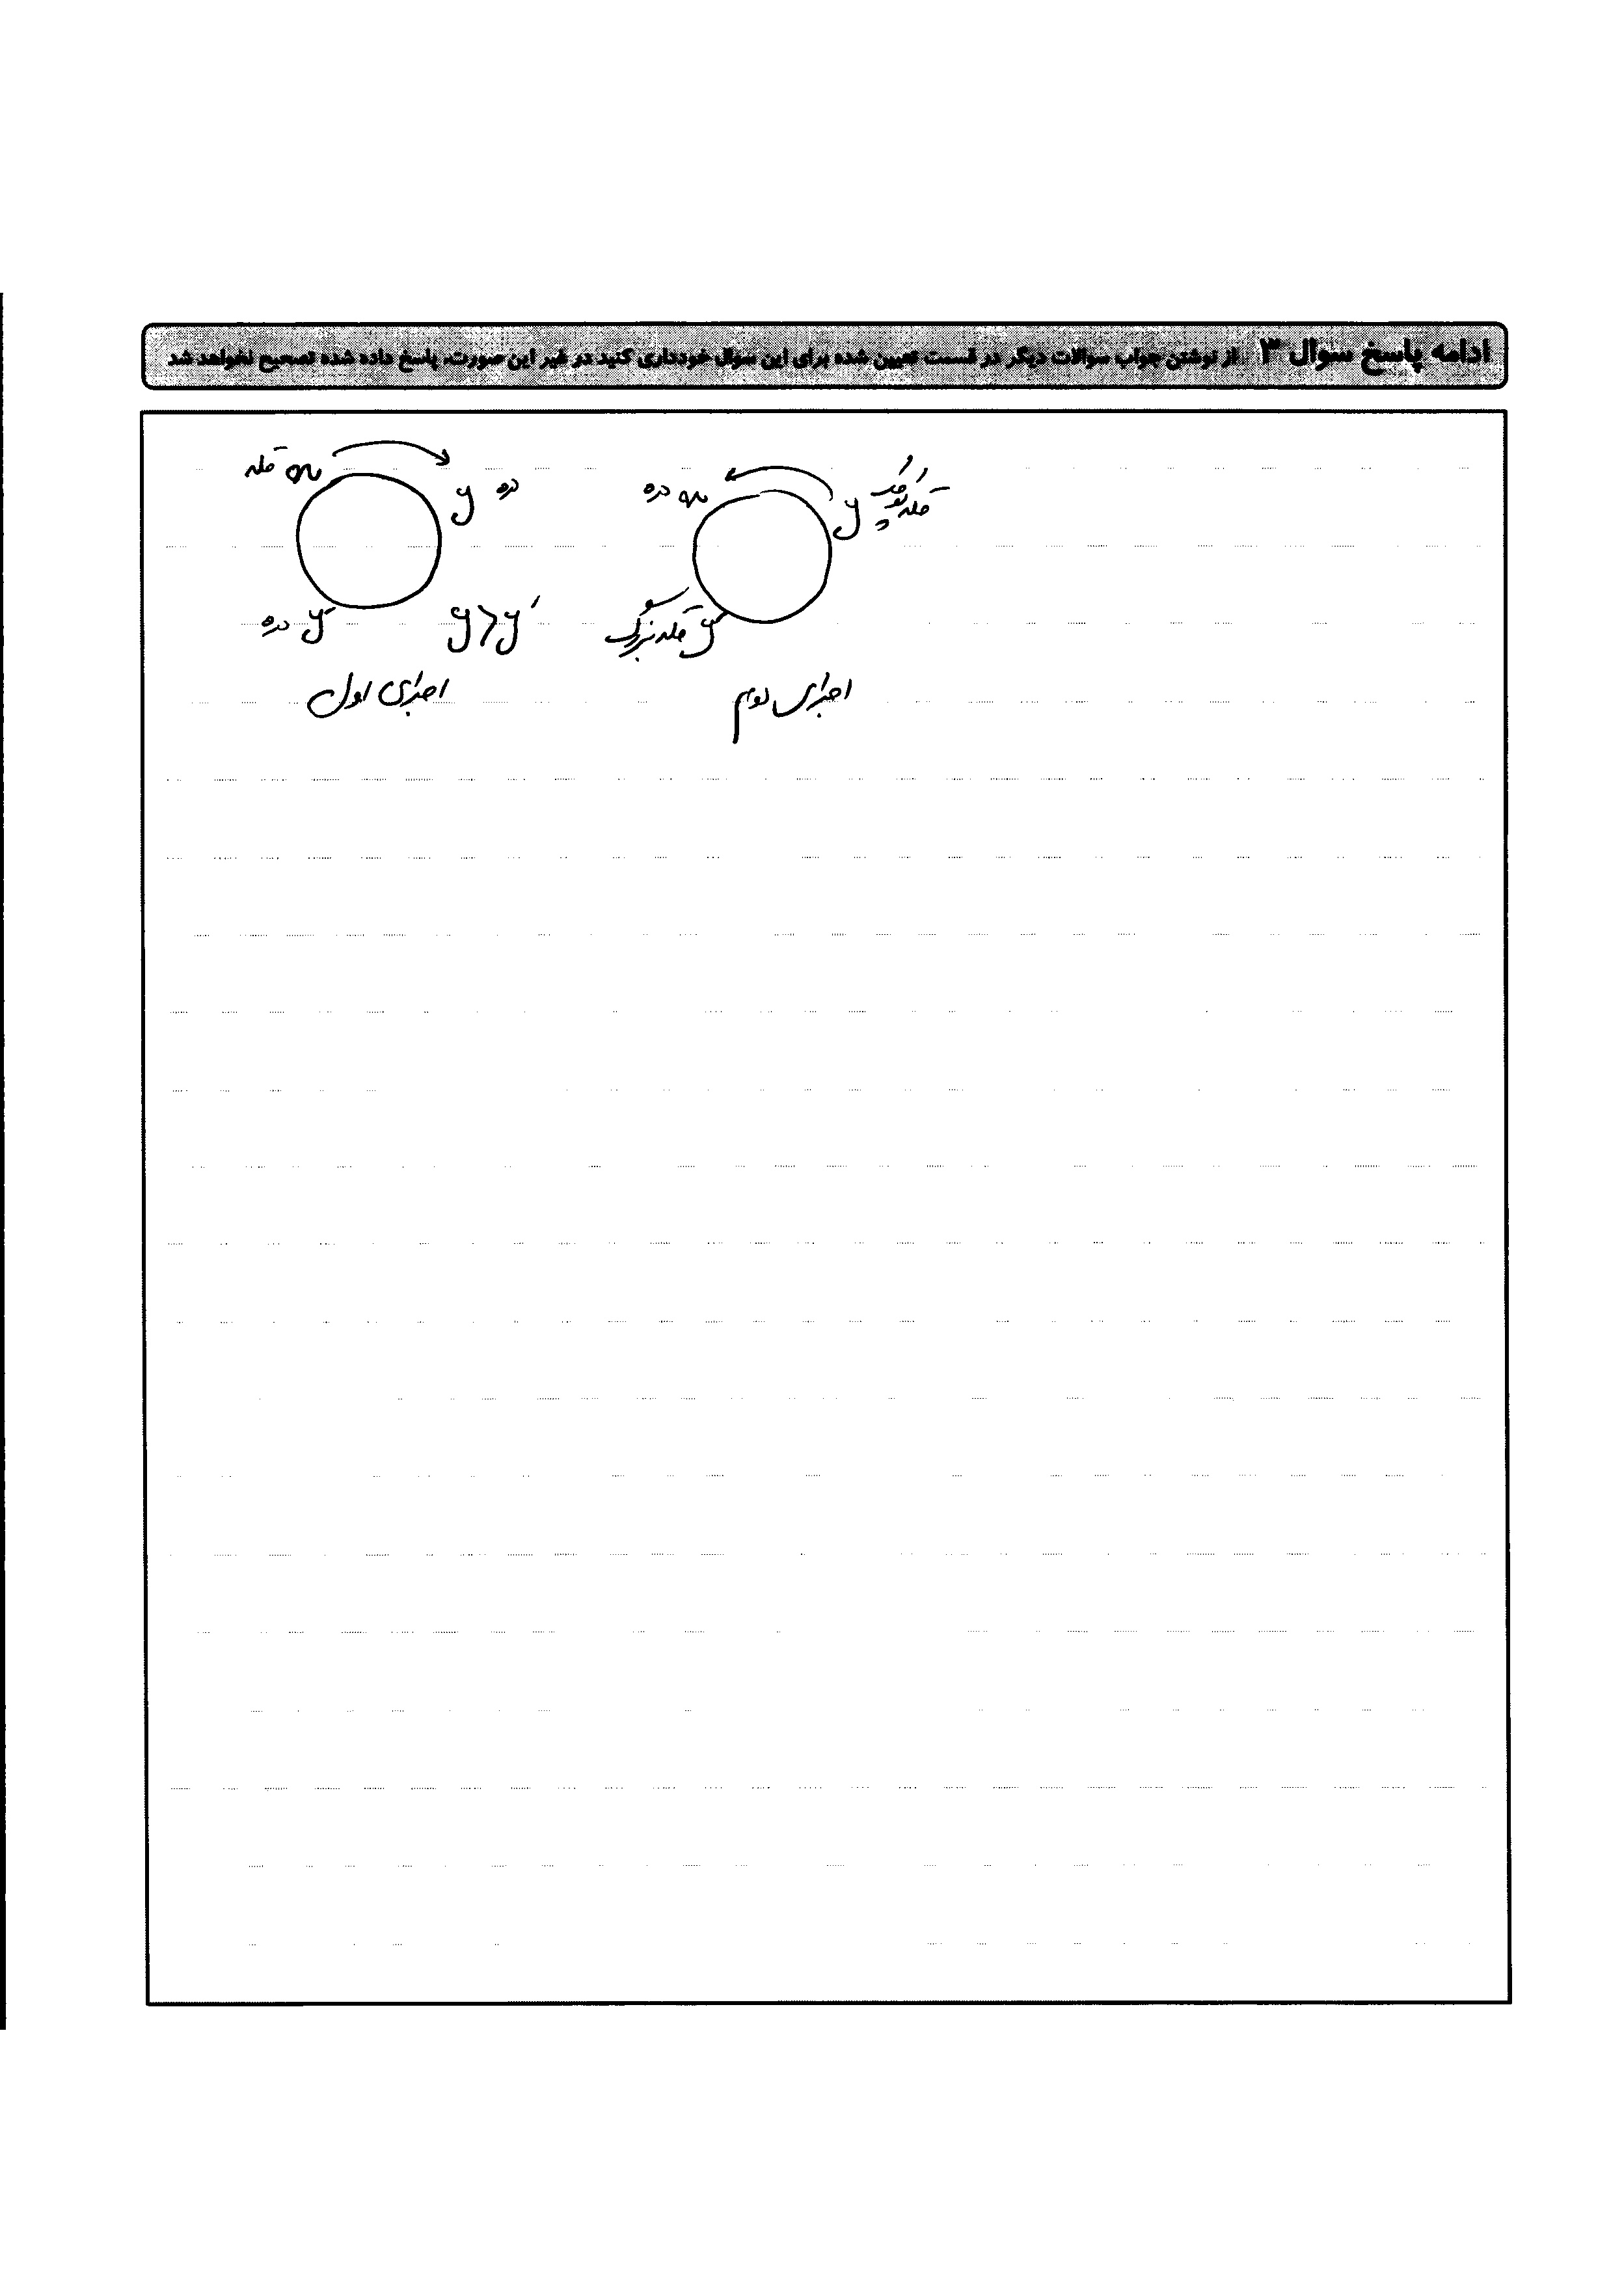 ادامه پاسخ سوال ۳ از نوشتن جواب سوالات دیگر در قسمت تعیین شده برای این سوال خودداری کنید در غیر این صورت، پاسخ داده شده تصحیح نخواهد شد
قله x
y دره
y' دره
y > y'
اجرای اول
x دره
y قله کوچک
y' قله بزرگ
اجرای دوم